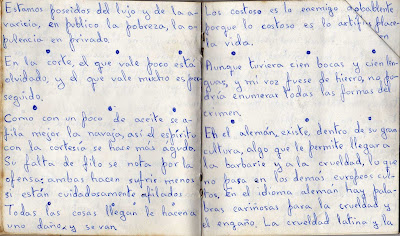 Estamos poseidos del lujo y de la a-
varicia, en público la pobreza, la o-
pulencia en privado.
En la corte, el que vale poco está
olvidado, y el que vale mucho es per-
seguido.
Como con un poco de aceite se a-
fila mejor la navaja, así el espíritu
con la cortesía se hace más agudo.
Su falta de filo se nota por la
ofensa; ambas hacen sufrir menos
si están cuidadosamente afilados.
Todas las cosas llegan, le hacen a
uno daño, y se van.
Los costoso es lo enemigo
porque lo costoso es lo
la vida.
Aunque tuviera cien bocas y cien len-
guas, y mi voz fuese de hierro, no po-
dría enumerar todas las formas del
crimen.
En el alemán, existe, dentro de su gran
cultura, algo que le permite llegar a
la barbarie y a la crueldad, lo que
no pasa en los demás europeos cul-
tos. En el idioma alemán hay pala-
bras cariñosas para la crueldad y
el engaño. La crueldad latina y la